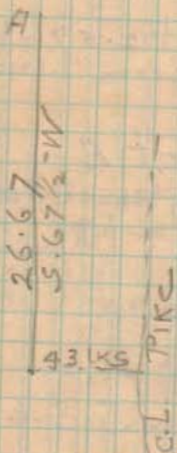 A
26.67
S.67½-W
43 LKS
C.L. PIKE